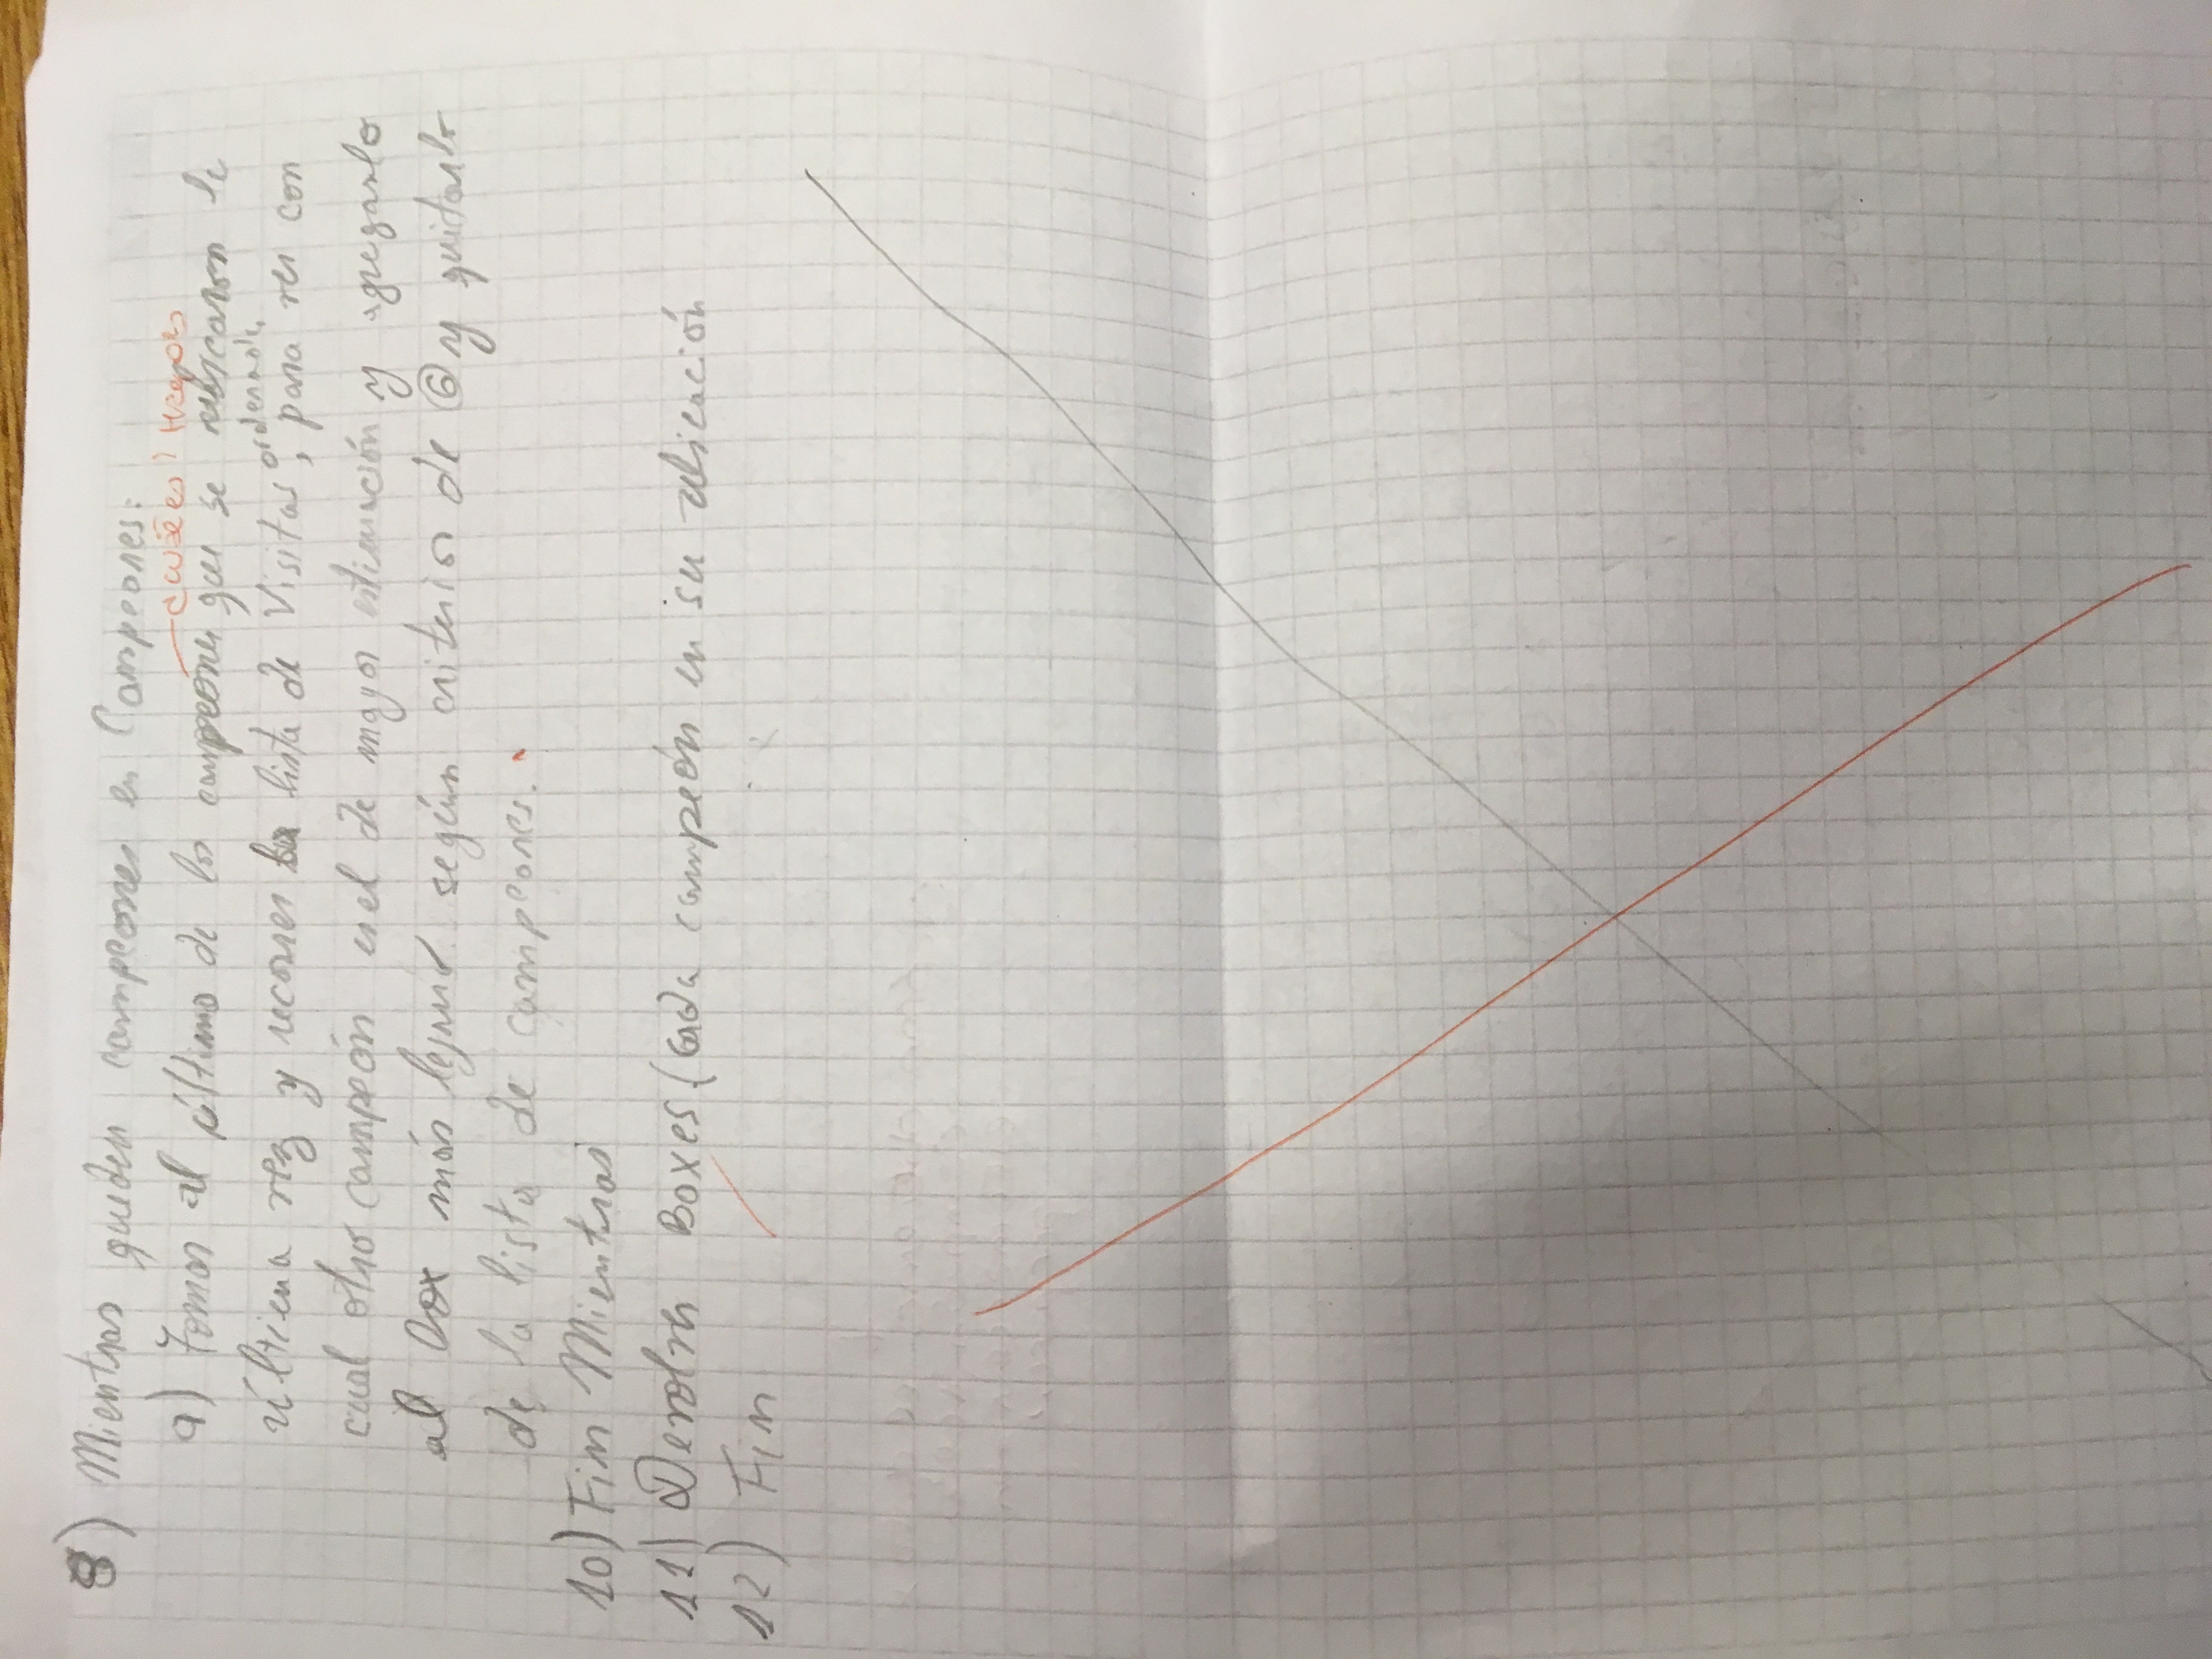 8) Mientras queden campeones en Campeones:
cuáles?
9) Tomar al último de los campeones que se ubicaron la
última vez y recorrer la lista de Visitas ordenada, para ver con
cual otro campeón es el de mayor estimación y agregarlo
al box más lejano según criterio de ⑥ y quitarlo
de la lista de campeones.
10) Fin Mientras
11) Devolver Boxes (cada campeón en su ubicación
12) Fin